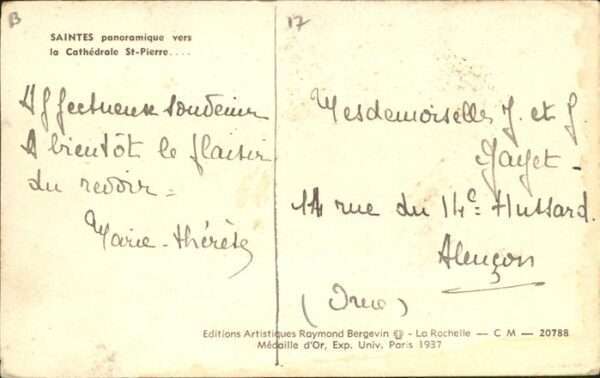 B
17
SAINTES panoramique vers
la Cathédrale St-Pierre....
Affectueux Souvenir
A bientôt le plaisir
du revoir =
Marie-Thérèse
Mesdemoiselles J. et G.
Gayet -
14 rue du 14e= Hussard.
Alençon
(Orne)
Editions Artistiques Raymond Bergevin - La Rochelle — C M — 20788
Médaille d'Or, Exp. Univ. Paris 1937